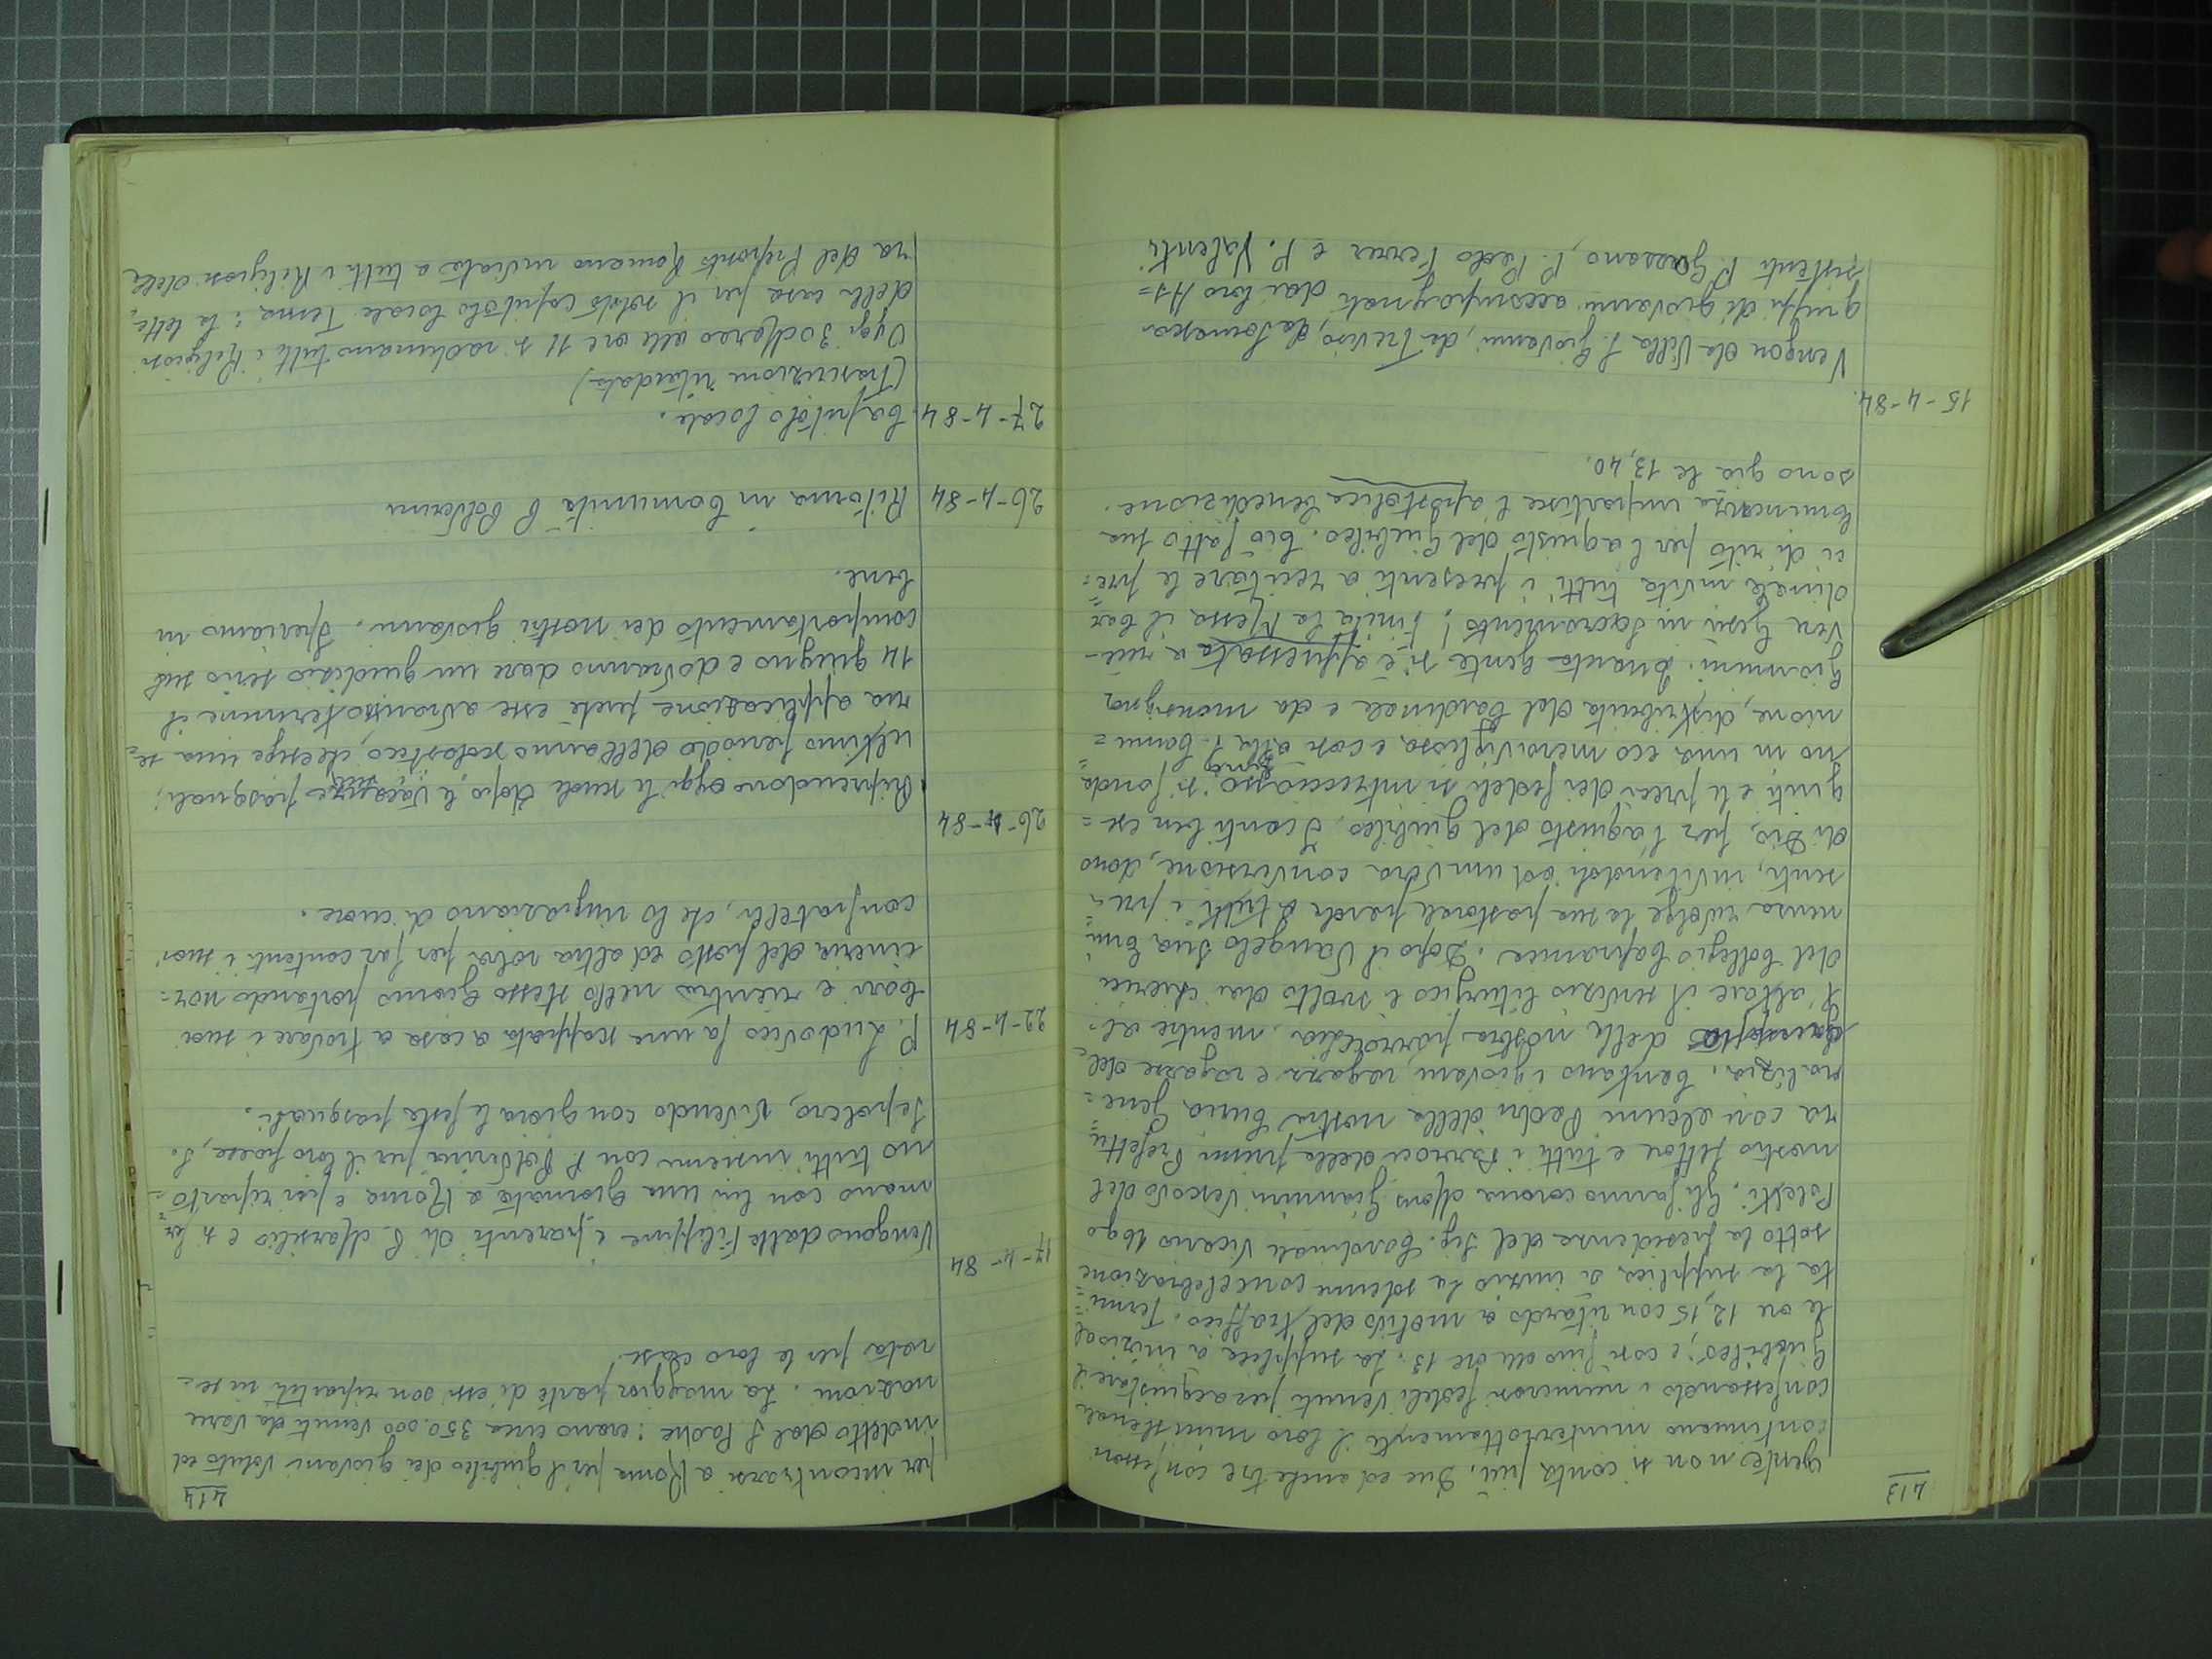 413
gente non si conta più. Due ed anche tre confessori
continuano ininterrottamente il loro ministero
confessando i numerosi fedeli venuti per acquistare il
Giubileo; e così fino alle ore 13. La supplica a inizio al
le ore 12,15 con ritardo a motivo del traffico. Termi=
ta la supplica si inizio la solenne concelebrazione
sotto la presidenza del Sig. Cardinale Vicario Ugo
Poletti. Gli fanno corona Mons Giannini Vescovo del
nostro settore e tutti i Parroci della prima Prefettu=
ra con alcuni Padri della nostra Curia Gene=
ralizia. Cantano i giovani, ragazzi e ragazze del
della nostra parrocchia mentre al=
l'altare il servizio liturgico è svolto dai chierici
del Collegio Capranica. Dopo il Vangelo Sua Emi=
nenza rivolge la sua pastorale parola a tutti i pre=
senti, invitandoli ad una vera conversione, dono
di Dio, per l'aquisto del giubileo. I canti ben ese=
guiti e le preci dei fedeli si intrecciano: si fondo
no in una eco meravigliosa e così alla S. Comu=
nione, distribuita dal Cardinale e da monsignor
Giannini. Quanta gente si è appressata a rice-
vere Gesù in Sacramento! Finita la Messa il Car
dinale invita tutti i presenti a recitare le pre=
ci di rito per l'aquisto del Giubileo. Ciò fatto sua
Eminenza impartisce l'apostolica benedizione.
sono già le 13,40.
15-4-84.
Vengon da Villa S. Giovanni, da Treviso, da Somasca
gruppi di giovani accompagnati dai loro As=
sistenti P. Gaetano, P. Paolo Ferrer e P. Valenti
414
per incontrarsi a Roma per il giubileo dei giovani voluto ed
indetto dal S. Padre: erano circa 350.000 venuti da varie
nazioni. La maggior parte di essi son ripartiti in se=
rata per le loro case.
17-4-84
Vengono dalle Filippine i parenti di P. Marsilio e si fer=
mano con lui una giornata a Roma e poi riparto=
no tutti insieme con P. Polverini per il loro paese, S.
Sepolcro, vivendo con gioia le feste pasquali.
22-4-84
P. Ludovico fa una scappata a casa a trovare i suoi
cari e rientra nello stesso giorno portando nor=
cineria del posto ed altra roba per far contenti i suoi
confratelli, che lo ringraziano di cuore.
26-4-84
Riprendono oggi le scuole dopo le vacanze pasquali;
ultimo periodo dell'anno scolastico, che esige una se=
ria applicazione perché esse avranno termine il
14 giugno e dovranno dare un giudizio serio sul
comportamento dei nostri giovani. Speriamo in
bene.
26-4-84 Ritorna in Comunità P. Polverini
27-4-84 Capitolo locale.
(Trascrizione ritardata)
Oggi 30 Marzo alle ore 11 si radunano tutti i Religiosi
della casa per il solito Capitolo locale. Tema: la lette=
ra del Preposito Romano inviata a tutti i Religiosi della